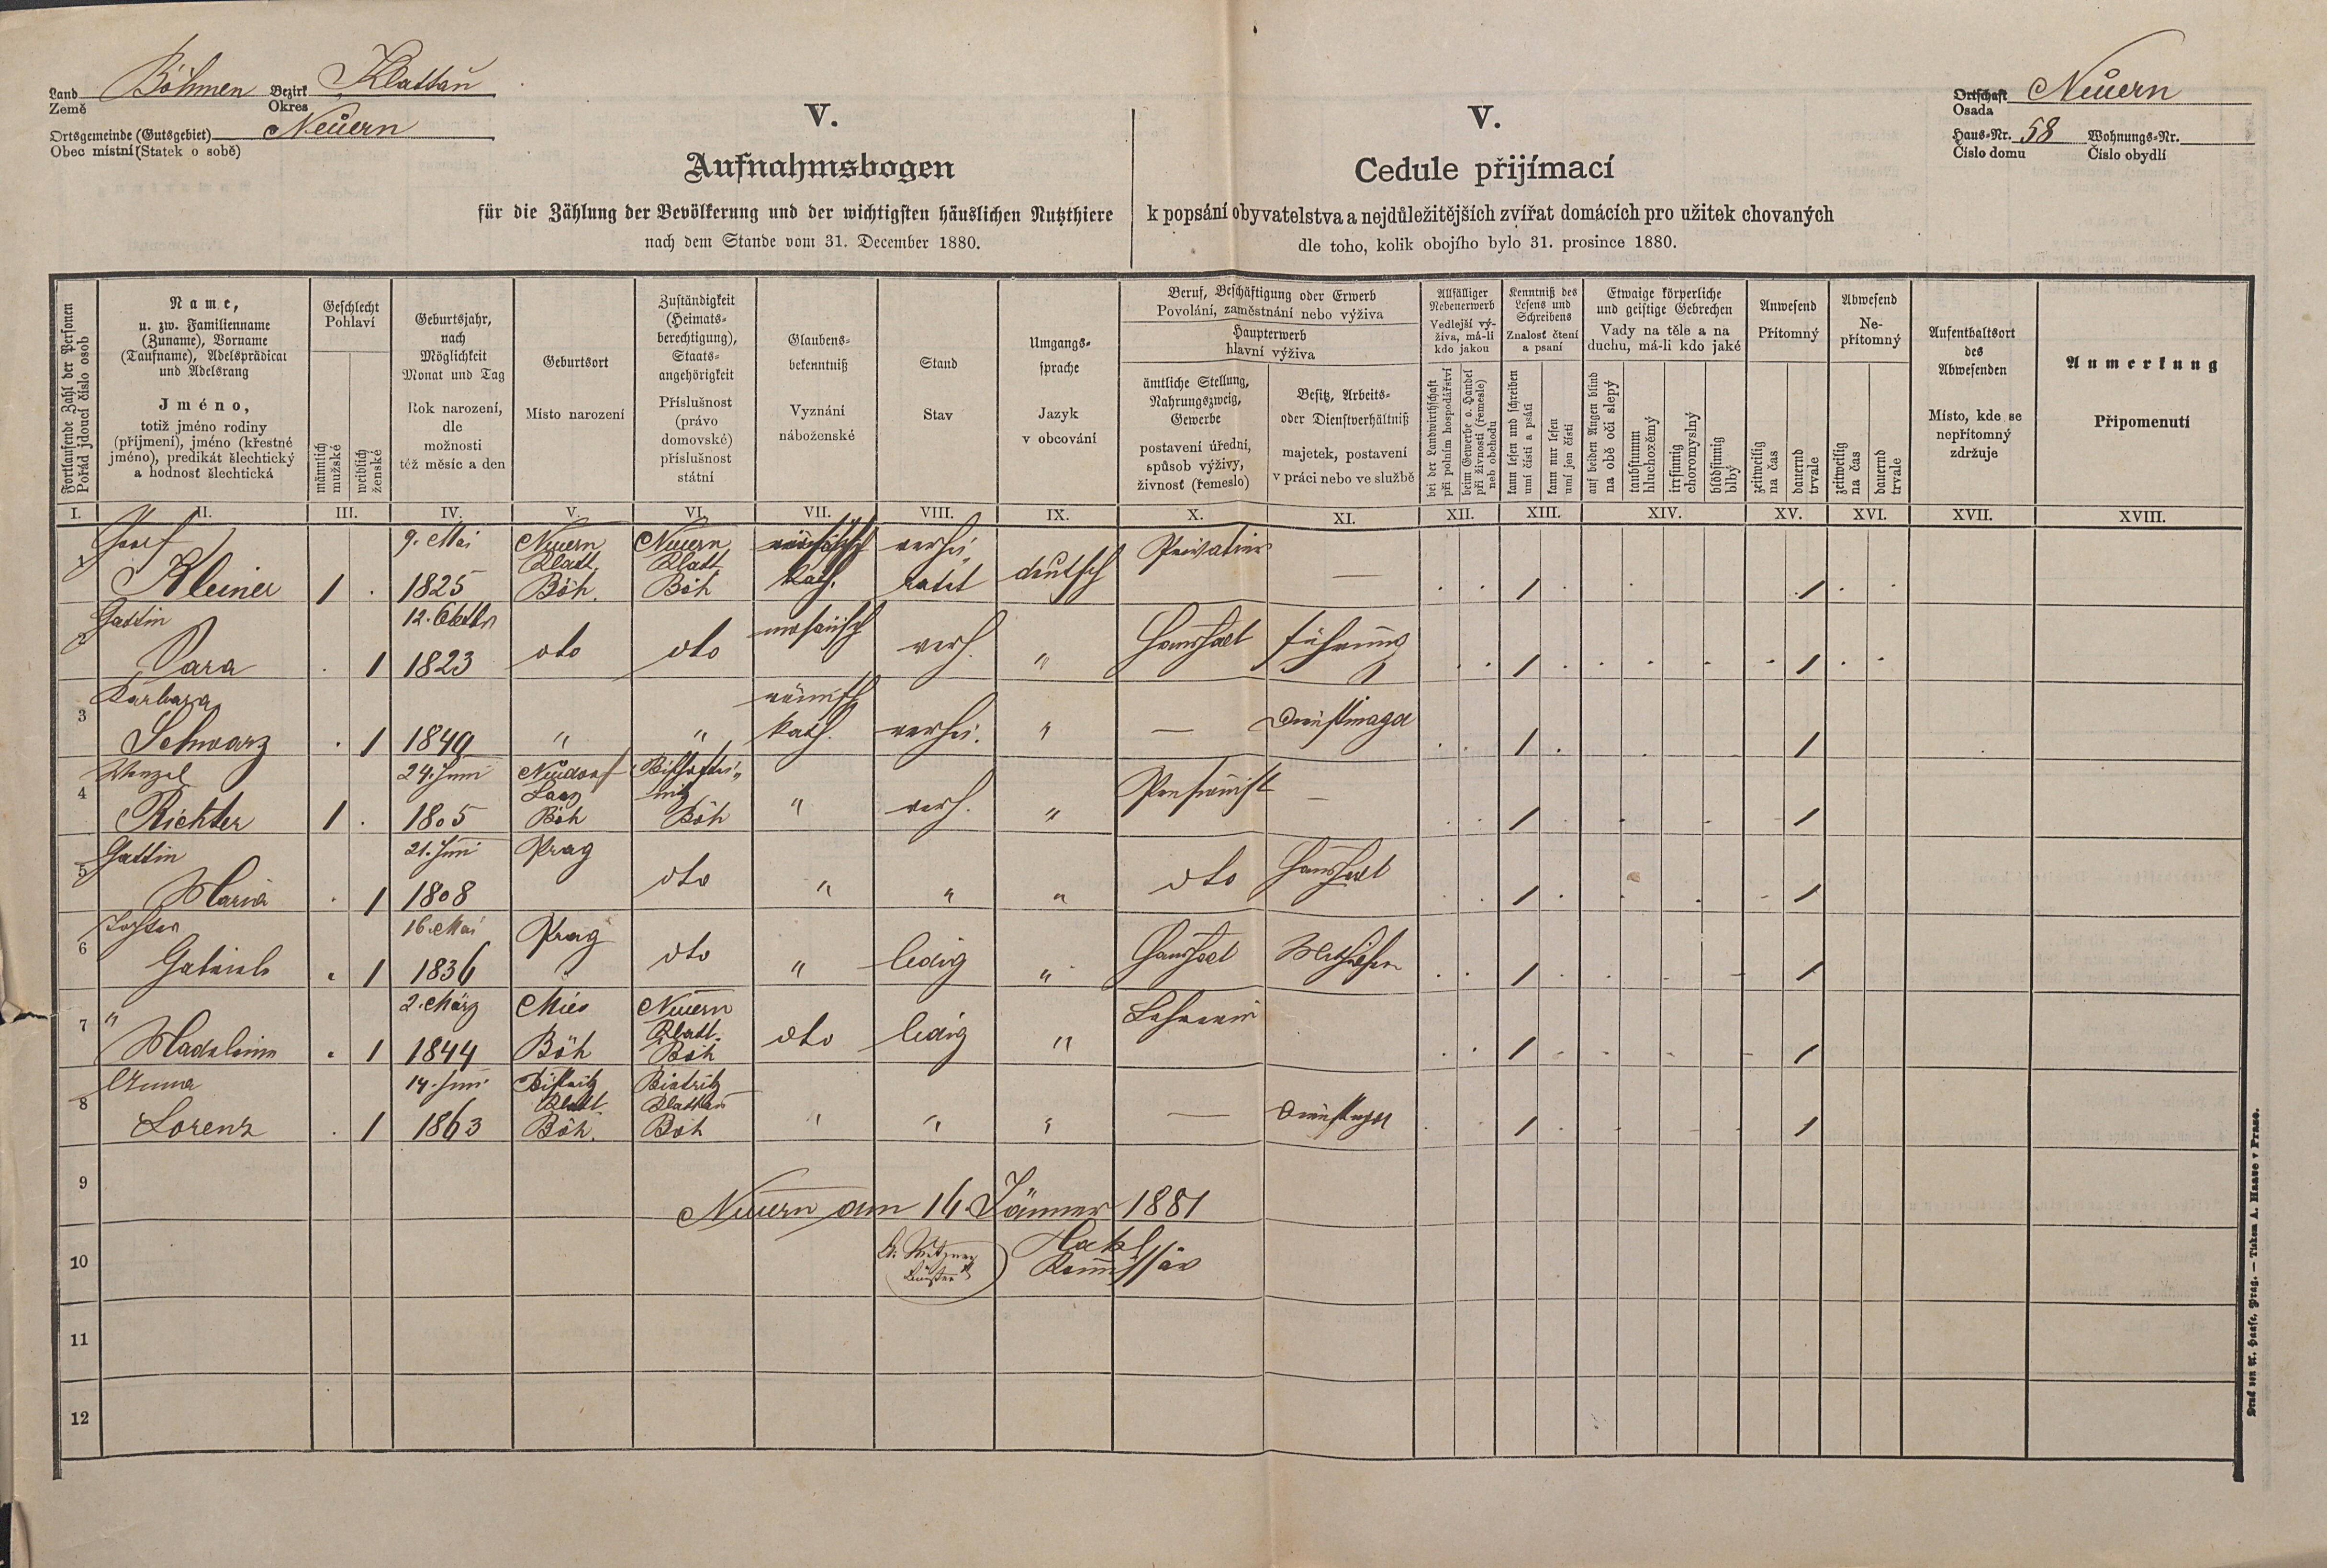 Land Böhmen Bezirk Klattau
Země Okres
Ortsgemeinde (Gutsgebiet) Neuern
Obec místní (Statek o sobě)
Ortschaft Neuern
Osada
Haus-Nr. 58 Wohnungs-Nr.
Číslo domu Číslo obydlí
V.
Aufnahmsbogen
für die Zählung der Bevölkerung und der wichtigsten häuslichen Nutzthiere
nach dem Stande vom 31. December 1880.
V.
Cedule přijímací
k popsání obyvatelstva a nejdůležitějších zvířat domácích pro užitek chovaných
dle toho, kolik obojího bylo 31. prosince 1880.
Fortlaufende Zahl der Personen
Pořád jdoucí číslo osob
Name,
u. zw. Familienname
(Zuname), Vorname
(Taufname), Adelsprädicat
und Adelsrang
Jméno,
totiž jméno rodiny
(příjmení), jméno (křestné
jméno), predikát šlechtický
a hodnost šlechtická
Geschlecht
Pohlaví
männlich
mužské
weiblich
ženské
Geburtsjahr,
nach
Möglichkeit
Monat und Tag
Rok narození,
dle
možnosti
též měsíc a den
Geburtsort
Místo narození
Zuständigkeit
(Heimats-
berechtigung),
Staats-
angehörigkeit
Příslušnost
(právo
domovské)
příslušnost
státní
Glaubens-
bekenntniß
Vyznání
náboženské
Stand
Stav
Umgangs-
sprache
Jazyk
v obcování
Beruf, Beschäftigung oder Erwerb
Povolání, zaměstnání nebo výživa
Haupterwerb
hlavní výživa
ämtliche Stellung,
Nahrungszweig,
Gewerbe
postavení úřední,
spůsob výživy,
živnost (řemeslo)
Besitz, Arbeits-
oder Dienstverhältniß
majetek, postavení
v práci nebo ve službě
Allfälliger
Nebenerwerb
Vedlejší vý-
živa, má-li
kdo jakou
bei der Landwirthschaft
při polním hospodářství
beim Gewerbe o. Handel
při živnosti (řemesle)
neb obchodu
Kenntniß des
Lesens und
Schreibens
Znalosť čtení
a psaní
kann lesen und schreiben
umí čísti a psáti
kann nur lesen
umí jen čísti
Etwaige körperliche
und geistige Gebrechen
Vady na těle a na
duchu, má-li kdo jaké
auf beiden Augen blind
na obě oči slepý
taubstumm
hluchoněmý
irrsinnig
choromyslný
blödsinnig
blbý
Anwesend
Přítomný
zeitweilig
na čas
dauernd
trvale
Abwesend
Ne-
přítomný
zeitweilig
na čas
dauernd
trvale
Aufenthaltsort
des
Abwesenden
Místo, kde se
nepřítomný
zdržuje
Anmerkung
Připomenutí
I. II. III. IV. V. VI. VII. VIII. IX. X. XI. XII. XIII. XIV. XV. XVI. XVII. XVIII.
Josef 9. Mai Neuern Neuern verhei- Privatier
1 Klatt. Klatt.
Kleiner 1 . 1825 Böh. Böh kath. ratet deutsch — . . 1 . . 1 . .
Gattin 12. Oktbr mosaisch
2 oto oto verh. Haushalt führung
Sara . 1 1823 " . . 1 . . . . . 1 . .
Barbara römisch
3 Dienstmagd
Schwarz . 1 1849 " " kath. verhei. " — . . 1 . . 1
Wenzel 24. Juni Neudorf Bischoftei- Pensionist
4 nitz
Richter 1 . 1805 Böh Böh " verh. " — . . 1 . . . . 1
Gattin 21. Juni Prag
5 oto oto Haushalt
Maria . 1 1808 " " " . . 1 . . . . 1
Tochter 16. Mai Prag
6 oto Haushalt
Gabriele . 1 1836 " ledig " . . 1 . . . - 1
" 2. März Mies Neuern Lehrerin
7 Klatt.
Madeleine . 1 1844 Böh Böh oto ledig " . . 1 . . . - 1
Anna 14. Juni Bistritz Bistritz
8 Klatt. Klattau Dienstmagd
Lorenz . 1 1863 Böh. Böh " " " — . . 1 . . . . 1
9
Neuern am 16. Jänner 1881
10 Kommissär
11
12
Druck von A. Haase, Prag. — Tiskem A. Haase v Praze.